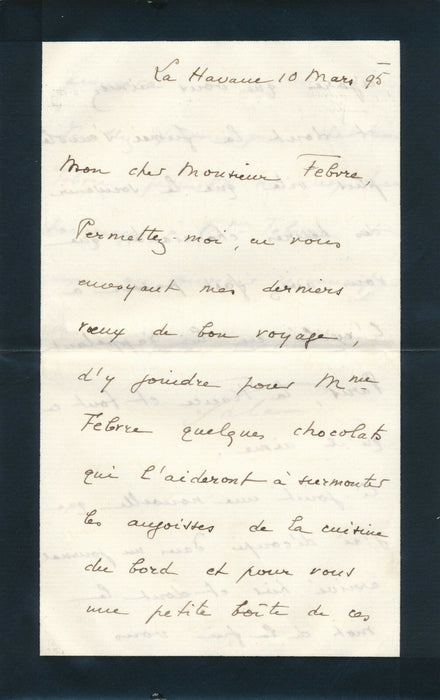 La Havane 10 Mars 95
Mon cher Monsieur Febvre,
Permettez moi, en vous
envoyant mes derniers
vœux de bon voyage,
d'y joindre pour Mme
Febvre quelques chocolats
qui l'aideront à surmonter
les angoisses de la cuisine
du bord et pour vous
une petite boîte de ces